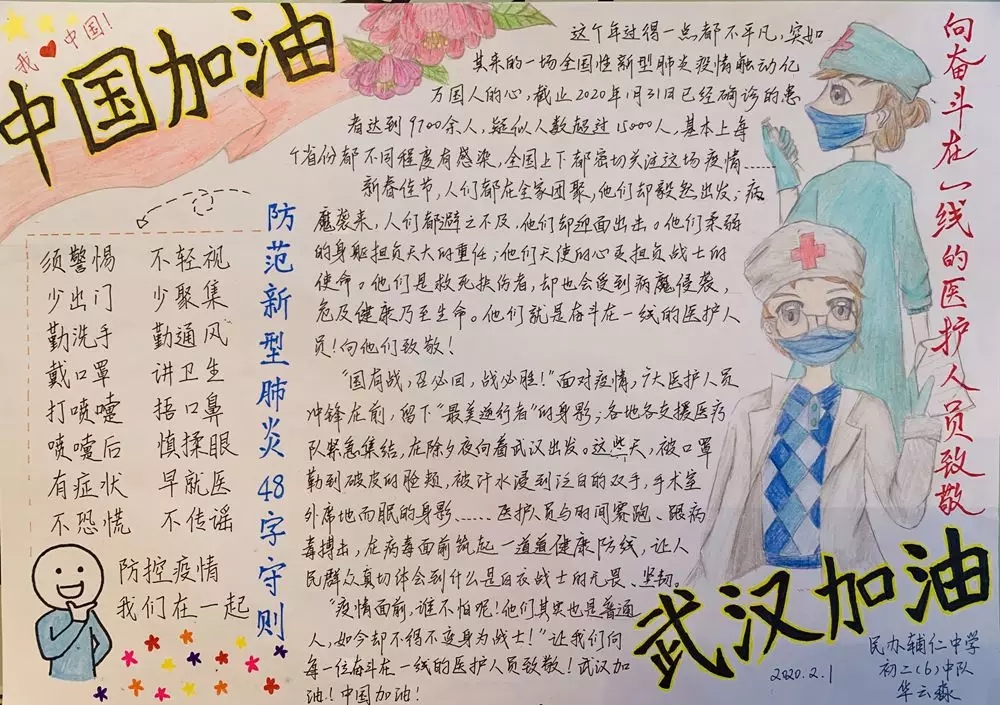 我❤中国!
中国加油
须警惕 不轻视
少出门 少聚集
勤洗手 勤通风
戴口罩 讲卫生
打喷嚏 捂口鼻
喷嚏后 慎揉眼
有症状 早就医
不恐慌 不传谣
防控疫情
我们在一起
防范新型肺炎48字守则
这个年过得一点都不平凡,突如
其来的一场全国性新型肺炎疫情触动亿
万国人的心,截止2020年1月31日已经确诊的患
者达到9700余人,疑似人数超过15000人,基本上每
个省份都不同程度有感染,全国上下都密切关注这场疫情……
新春佳节,人们都在全家团聚,他们却毅然出发;病
魔袭来,人们都避之不及,他们却迎面出击。他们柔弱
的身躯担负天大的重任;他们天使的心更担负战士的
使命。他们是救死扶伤者,却也会受到病魔侵袭,
危及健康乃至生命。他们就是奋斗在一线的医护人
员!向他们致敬!
“国有战,召必回,战必胜!”面对疫情,广大医护人员
冲锋在前,留下“最美逆行者”的身影;各地各支援医疗
队紧急集结,在除夕夜向着武汉出发。这些天,被口罩
勒到破皮的脸颊,被汗水浸到泛白的双手,手术室
外席地而眠的身影……医护人员与时间赛跑、跟病
毒搏击,在病毒面前筑起一道道健康防线,让人
民群众真切体会到什么是白衣战士的无畏、坚韧。
“疫情面前,谁不怕呢!他们其实也是普通
人,如今却不得不变身为战士!”让我们向
每一位奋斗在一线的医护人员致敬!武汉加
油!中国加油!
向奋斗在一线的医护人员致敬
武汉加油
2020.2.1
民办辅仁中学
初二(6)中队
华云淼